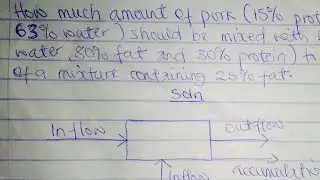 How much amount of pork (15% prot
63% water) should be mixed with
water, 80% fat and 30% protein) to
of a mixture containing 25% fat.
Soln
Inflow
outflow
Inflow
accumulatio